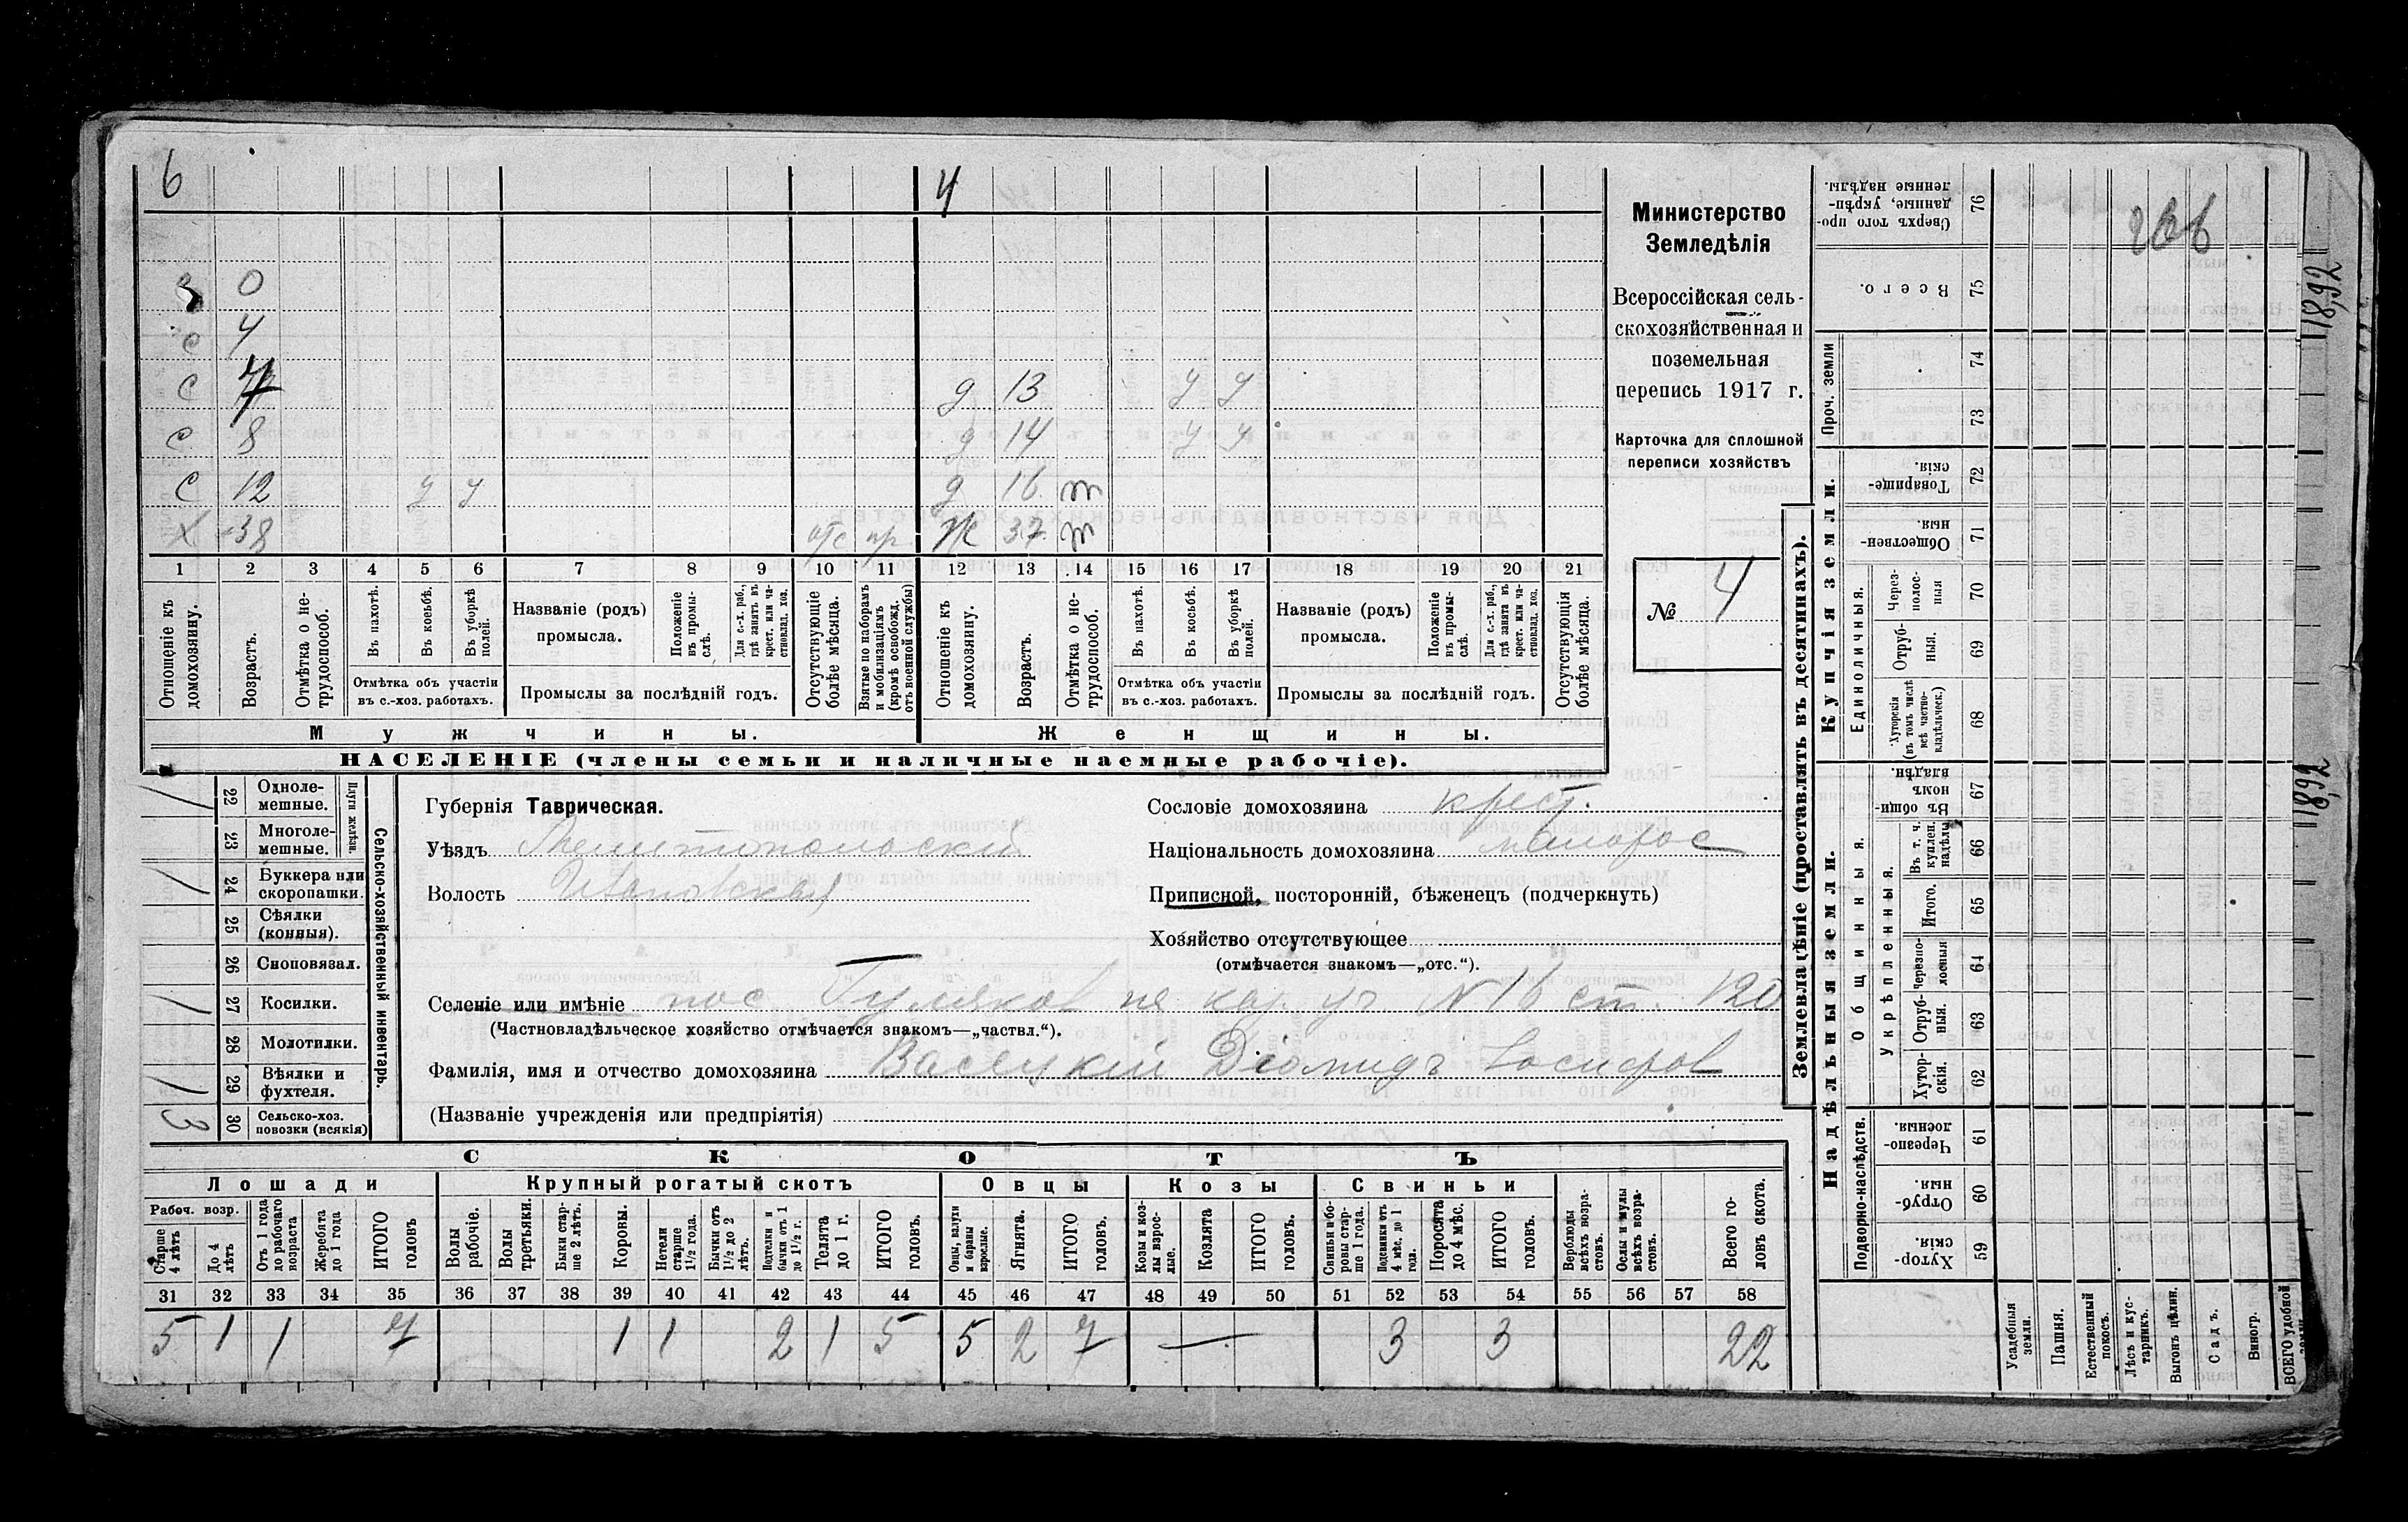 6 4
З 0
с 4
с 7 д 13 У У
с 8 д 14 У У
с 12 У У д 16 m
Х 38 отс пр Ж 37 m
1 2 3 4 5 6 7 8 9 10 11 12 13 14 15 16 17 18 19 20 21
Отношеніе къ домохозяину.
Возрастъ.
Отмѣтка о не-трудоспособ.
Въ пахотѣ.
Въ косьбѣ.
Въ уборкѣ полей.
Отмѣтка объ участіи
въ с.-хоз. работахъ.
Названіе (родъ)
промысла.
Положеніе въ промы-слѣ.
Для с.-х. раб., гдѣ занятъ въ крест. или ча-стновлад. хоз.
Промыслы за послѣдній годъ.
Отсутствующіе болѣе мѣсяца.
Взятые по наборамъ и мобилизаціямъ (кромѣ освобожд. отъ военной службы)
Отношеніе къ домохозяину.
Возрастъ.
Отмѣтка о не-трудоспособ.
Въ пахотѣ.
Въ косьбѣ.
Въ уборкѣ полей.
Отмѣтка объ участіи
въ с.-хоз. работахъ.
Названіе (родъ)
промысла.
Положеніе въ промы-слѣ.
Для с.-х. раб., гдѣ занята въ крест. или ча-стновлад. хоз.
Промыслы за послѣдній годъ.
Отсутствующія болѣе мѣсяца.
Мужчины. Женщины.
НАСЕЛЕНІЕ (члены семьи и наличные наемные рабочіе).
Министерство
Земледѣлія
Всероссійская сель-
скохозяйственная и
поземельная
перепись 1917 г.
Карточка для сплошной
переписи хозяйствъ
№ 4
/ 22 Одноле-мешные.
23 Многоле-мешные.
Плуги желѣзн.
/ 24 Буккера или скоропашки.
25 Сѣялки (конныя).
26 Сноповязал.
/ 27 Косилки.
28 Молотилки.
/ 29 Вѣялки и фухтеля.
3 30 Сельско-хоз. повозки (всякія)
Сельско-хозяйственный инвентарь.
Губернія Таврическая.
Уѣздъ Мелитопольскій
Волость Ивановская
Сословіе домохозяина крест.
Національность домохозяина малорос
Приписной, посторонній, бѣженецъ (подчеркнуть)
Хозяйство отсутствующее
(отмѣчается знакомъ—„отс.“).
Селеніе или имѣніе пос. Гуляков на кар. уч. N 16 ст. 120
(Частновладѣльческое хозяйство отмѣчается знакомъ—„частвл.“).
Фамилія, имя и отчество домохозяина Васецкій Діомидъ Іосифов
(Названіе учрежденія или предпріятія)
СКОТЪ
Лошади Крупный рогатый скотъ Овцы Козы Свиньи
Рабоч. возр.
Старше 4 лѣтъ
До 4 лѣтъ
Отъ 1 года до рабочаго возраста
Жеребята до 1 года
ИТОГО головъ
Волы рабочіе.
Волы третьяки.
Быки стар-ше 2 лѣтъ.
Коровы.
Нетели старше 1½ года.
Бычки отъ 1½ до 2 лѣтъ.
Подтелки и бычки отъ 1 до 1½ г.
Телята до 1 г.
ИТОГО головъ.
Овцы, валухи и бараны взрослые.
Ягнята.
ИТОГО головъ.
Козы и коз-лы взрос-лые.
Козлята
ИТОГО головъ.
Свиньи и бо-ровы стар-ше 1 года.
Подсвинки отъ 4 мѣс. до 1 года.
Поросята до 4 мѣс.
ИТОГО головъ.
Верблюды всѣхъ возра-стовъ.
Ослы и мулы всѣхъ возра-стовъ.
Всего го-ловъ скота.
31 32 33 34 35 36 37 38 39 40 41 42 43 44 45 46 47 48 49 50 51 52 53 54 55 56 57 58
5 1 1 7 1 1 2 1 5 5 2 7 — 3 3 22
Землевладѣніе (проставлять въ десятинахъ).
Надѣльныя земли. Купчія земли. Проч. земли
Подворно-наслѣдств. Общинныя. Укрѣпленныя. Единоличныя.
59 Хутор-скія.
60 Отруб-ныя.
61 Черезпо-лосныя.
62 Хутор-скія.
63 Отруб-ныя.
64 Черезпо-лосныя
65 Итого.
66 Въ т. ч. куплен. надѣлы
67 Въ общи-номъ владѣн.
68 Хуторскія (въ томъ числѣ всѣ частно-владѣльческ.)
69 Отруб-ныя.
70 Через-полос-ныя
71 Обществен-ныя.
72 Товарище-скія.
73
74
75 Всего.
76 Сверхъ того про-данные, укрѣп-ленные надѣлы.
Усадебныя земли.
Пашня.
Естественный покосъ.
Лѣсъ и кус-тарникъ.
Выгонъ цѣлин.
Садъ.
Виногр.
ВСЕГО удобной
18,92
18,92